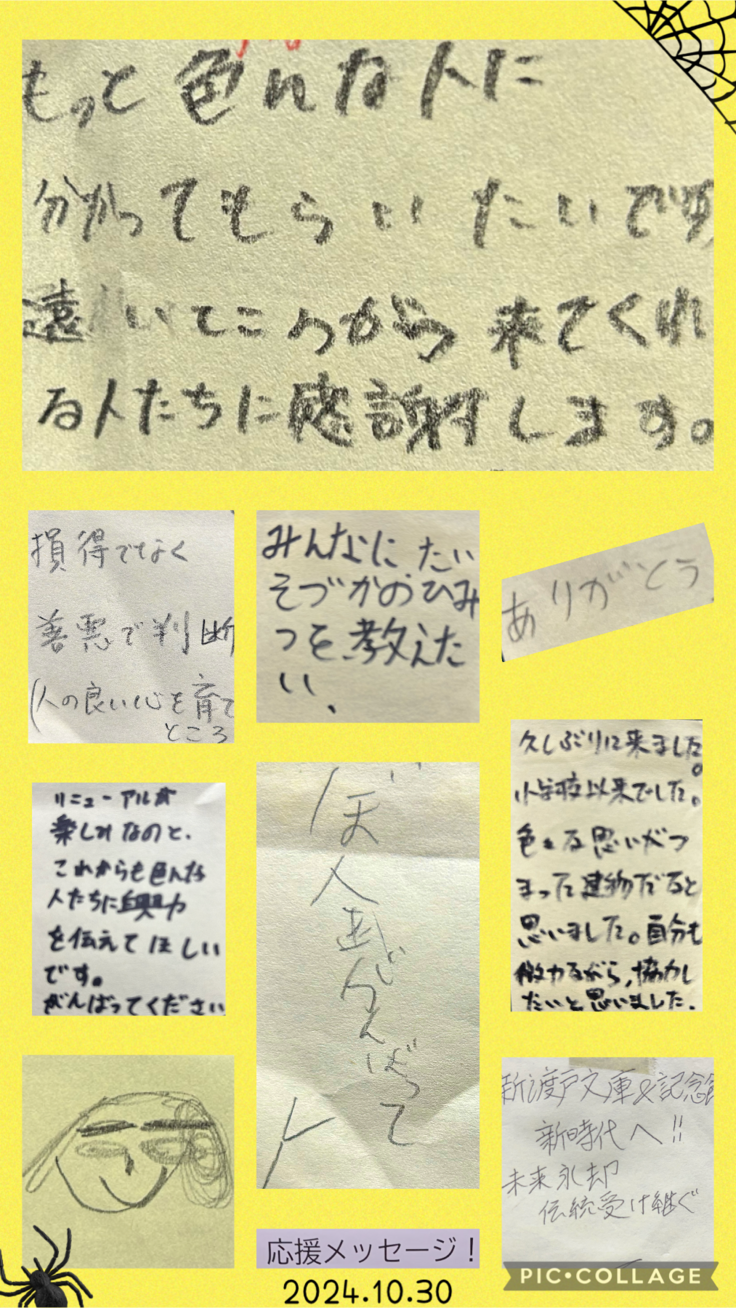 もっと色んな人に
分かってもらいたいです
遠いところから来てくれ
る人たちに感謝します。
損得でなく
善悪で判断
(人の良い心を育て
ところ
みんなに たい
そづかのひみ
つを教えた
い、
ありがとう
リニューアルが
楽しみなのと、
これからも色んな
人たちに魅力
を伝えてほしい
です。
がんばってください
がんばって
久しぶりに来ました。
小学校以来でした。
色々な思いがつ
まった建物だなと
思いました。自分も
微力ながら,協力し
たいと思いました.
新渡戸文庫&記念館
新時代へ!!
未来永劫
伝統受け継ぐ
応援メッセージ!
2024.10.30
PIC•COLLAGE